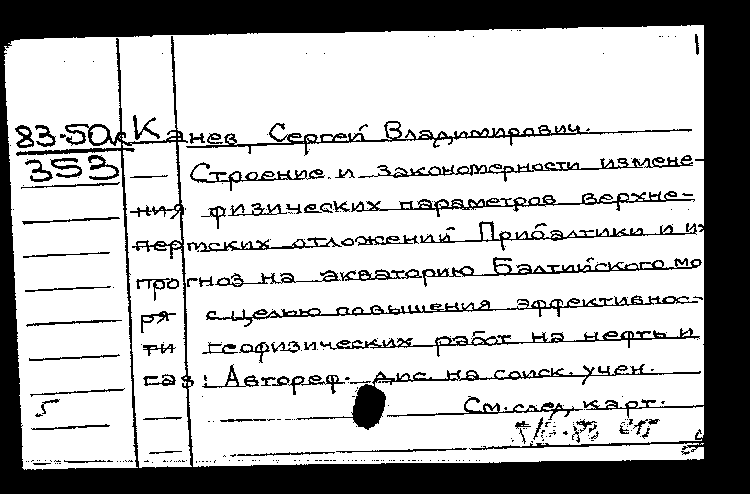 83-50а Канев, Сергей Владимирович.
353 Строение и закономерности измене-
ния физических параметров верхне-
пермских отложений Прибалтики и их
прогноз на акваторию Балтийского мо
ря с целью повышения эффективнос-
ти геофизических работ на нефть и
газ: Автореф. дис. на соиск. учен.
5 См. след. карт.